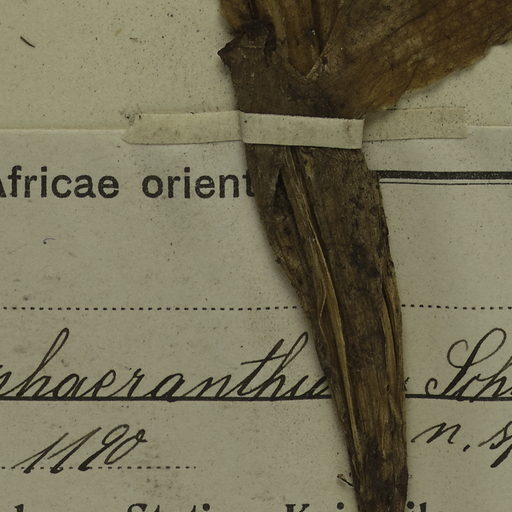 Africae orient
phaeranthu Sch
1190 n. sp
Station K